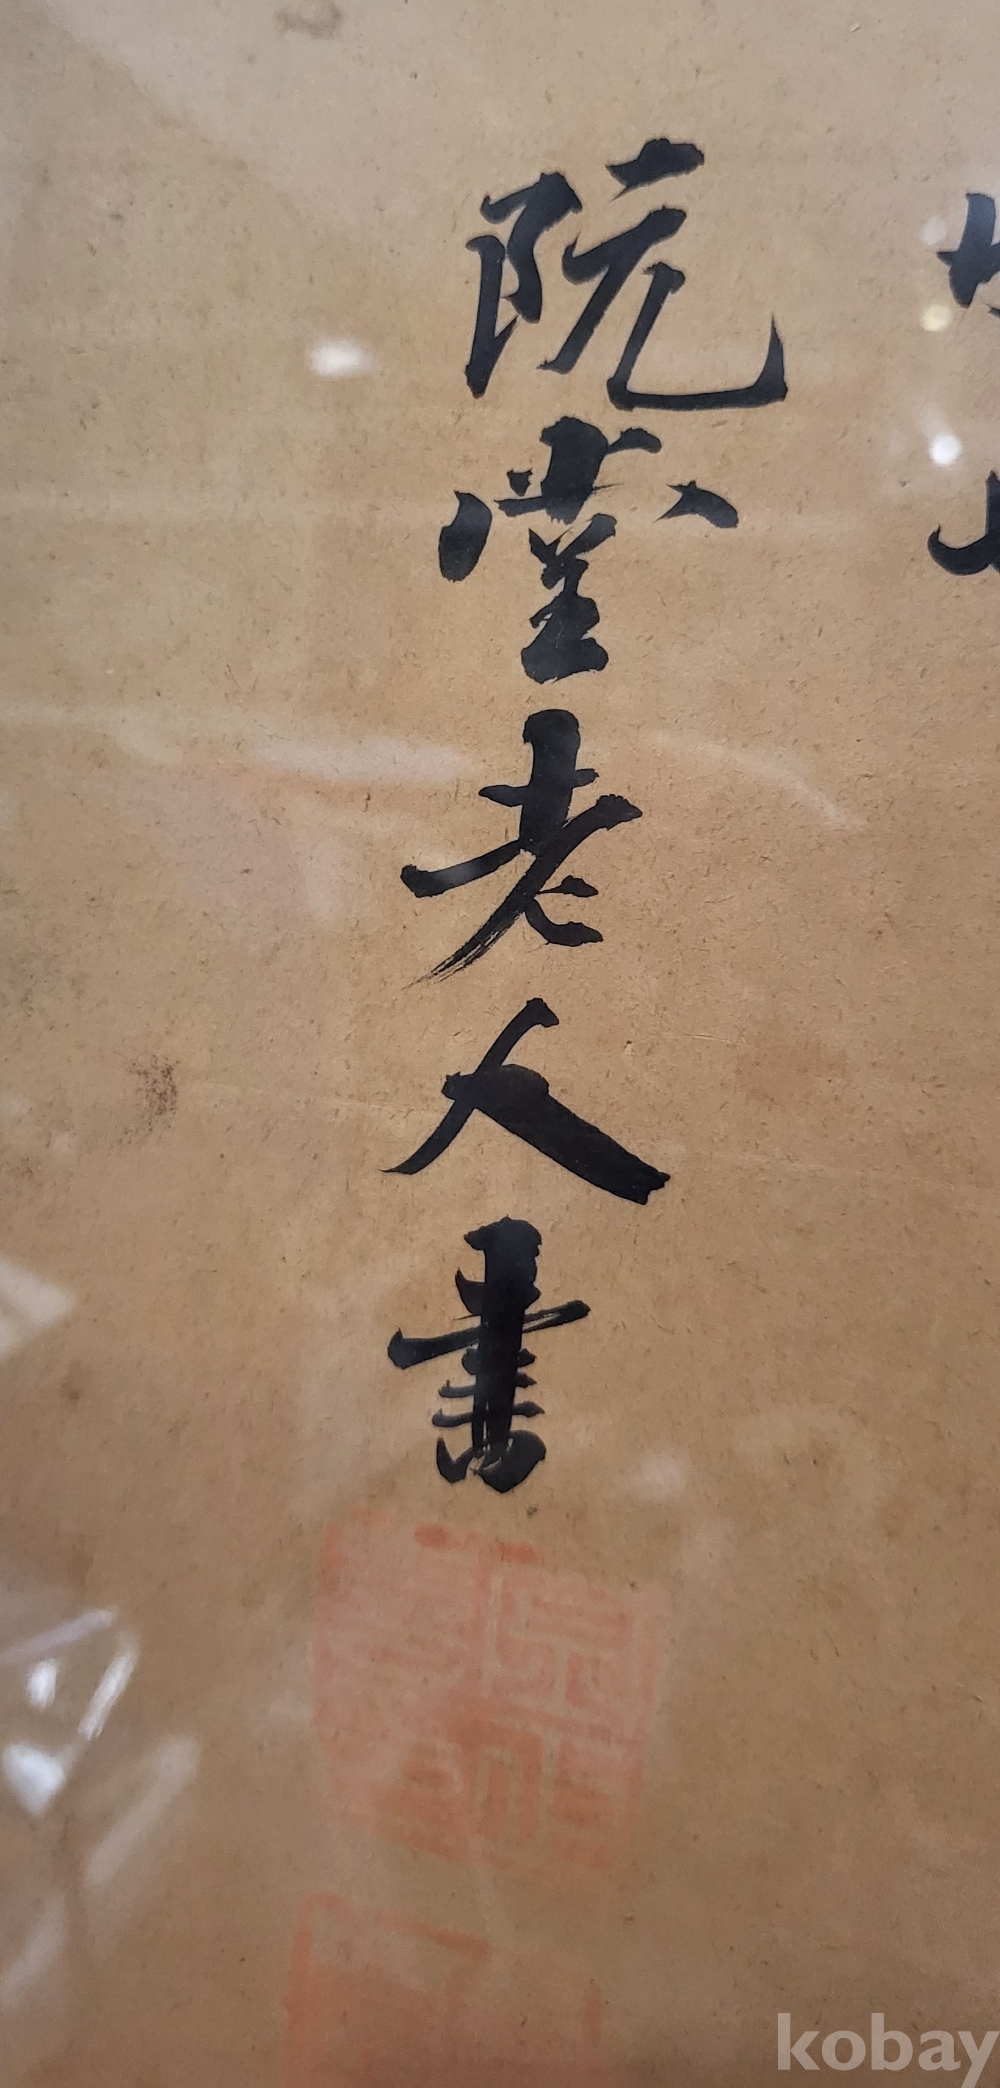 阮堂老人書
kobay